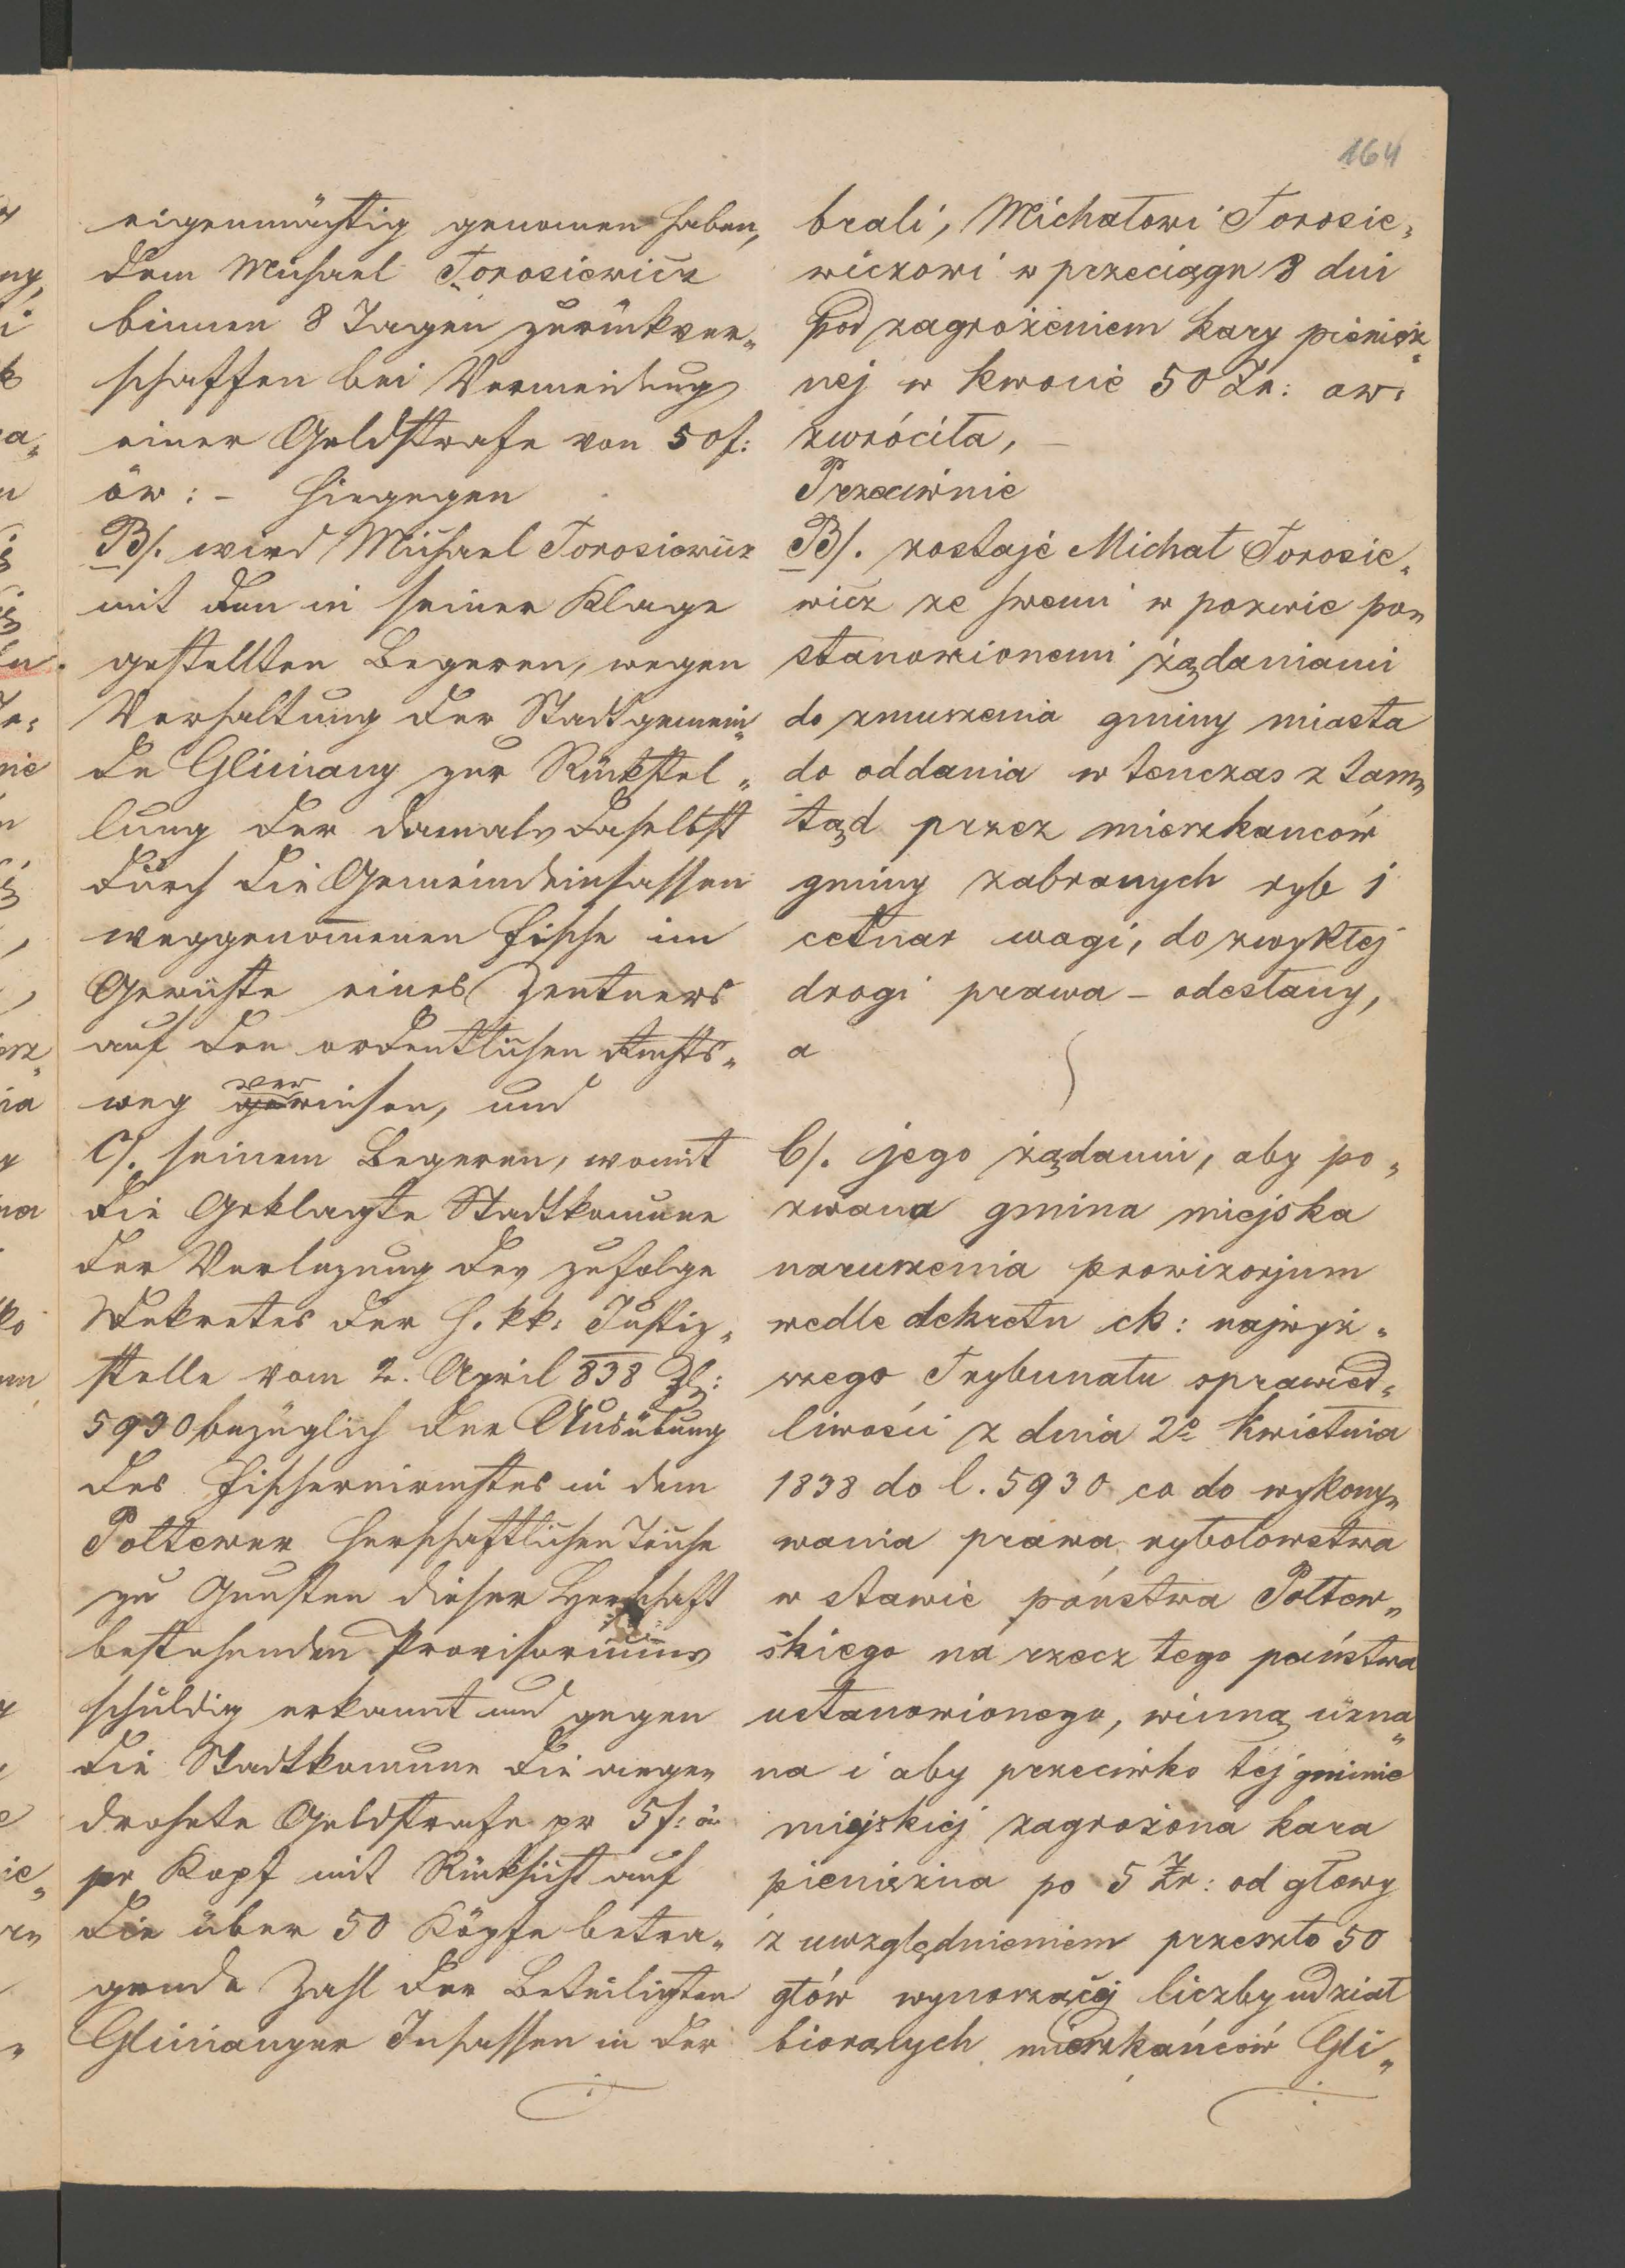 164
eigenmächtig genomen haben,
dem Michael Torosiewicz
binnen 8 Tagen zurückver„
schaffen bei Vermeidung
einer Geldstrafe von 50 f:
öw: - Hingegen
B/. wird Michael Torosiewicz
mit den in seiner Klage
gestellten Begeren, wegen
Verhaltung der Stadtgemein„
de Gliniany zur Rückstel„
lung der damals daselbst
durch die Gemeindeinsassen
weggenomenen Fische im
Gewichte eines Zentners
auf den ordentlichen Rechts„
weg verwiesen, und
C/. seinem Begeren, womit
die Geklagte Stadtkomune
der Verlezung des zufolge
Dekretes der h. kk: Justiz„
stelle vom 2. April 838 Zl:
5930 bezüglich der Ausübung
des Fischereirechtes in dem
Połtewer herschaftlichen Teiche
zu Gunsten dieser Herschaft
bestehenden Provisoriums
schuldig erkannt und gegen
die Stadtkomune die ange„
drohete Geldstrafe pr 5 f: ö
pr Kopf mit Rücksicht auf
die über 50 Köpfe betra„
gende Zahl der Beteiligten
Glinianyer Insassen in der
brali, Michałowi Torosie„
wiczowi w przeciągu 8 dni
pod zagrożeniem kary pienięż„
nej w kwocie 50 Zr: aw:
zwróciła, —
Przeciwnie
B/. zostaje Michał Torosie„
wicz ze swemi w pozwie po„
stanowionemi żądaniami
do zmuszenia gminy miasta
do oddania w tenczas z tam„
tąd przez mieszkanców
gminy zabranych ryb 1
cetnar wagi, do zwykłej
drogi prawa – odesłany,
a
C/. jego żądaniu, aby po„
zwana gmina miejska
naruszenia prowizorjum
wedle dekretu ck: najwyż„
szego Trybunału sprawied„
liwości z dnia 2o Kwietnia
1838 do l. 5930 co do wykony„
wania prawa rybołowstwa
w stawie państwa Połtew„
skiego na rzecz tego państwa
ustanowionego, winną uzna„
na i aby przeciwko tej gminie
miejskiej zagrożona kara
pieniężna po 5 Zr: od głowy
z uwzględnieniem przeszło 50
głów wynoszącej liczby udział
biorących mieszkańców Gli„